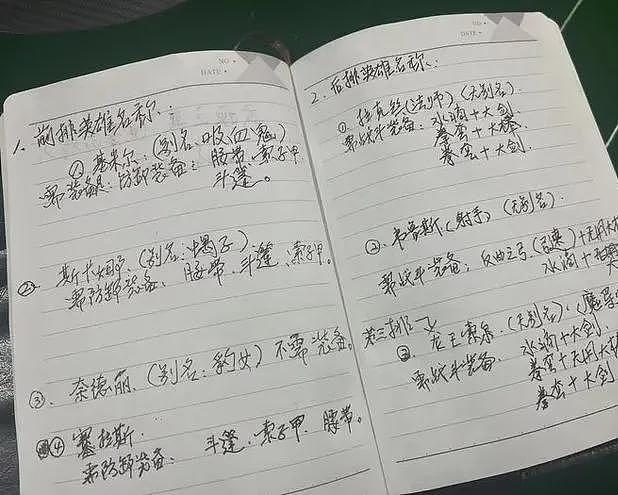 NO •
DATE •
1. 前排英雄名称:
① 基来尔:(别名:吸血鬼)
需装备: 防御装备: 腰带. 索子甲
斗篷。
② 斯卡纳 (别名:蝎子)
需防御装备、腰带. 斗篷、索子甲。
③、奈德丽. (别名:豹女) 不需装备。
④ 塞拉斯.
需防御装备: 斗篷. 索子甲. 腰带。
NO •
DATE •
2. 后排英雄名称:
① 佐伊丝 (法师) (无别名).
需战斗装备: 水滴十大剑
拳套十大棒
拳套十大剑.
② 韦鲁斯 (射手) (无别名).
需战斗装备: 反曲之弓 十无用大
水滴十
第三排
③ 龙王索尔. (无别名).
需战斗装备 水滴十大剑.
拳套十无用大
拳套十大剑